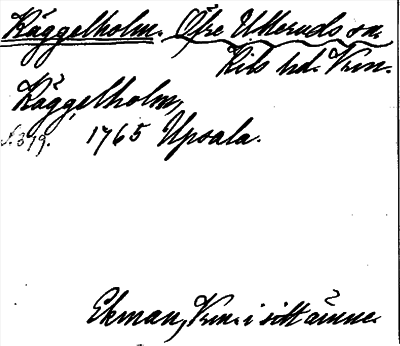 Räggelholm. Öfre Ulleruds sn.
Kils hd. Vrm.
Räggelholm,
s. 319. 1765 Upsala.
Ekman, Vrm. i sitt ämne.